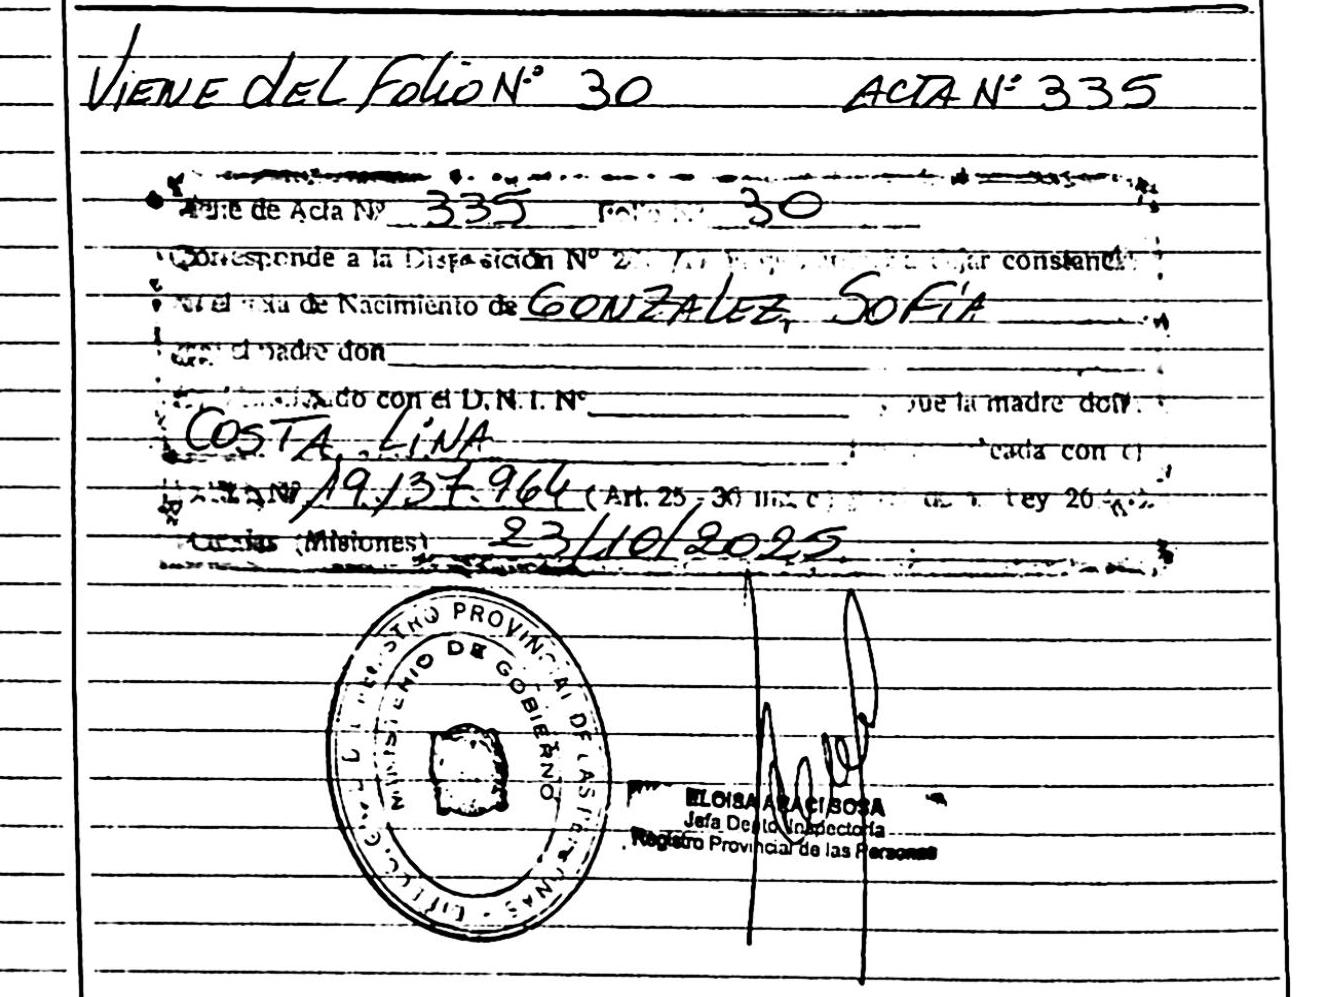 VIENE dEL Folio N.º 30 ACTA Nº 335
de Acta Nº 335 30
Corresponde a la Disposición Nº constanci
de Nacimiento de GONZALEZ, SOFÍA
padre don
do con el D.N.I. Nº que la madre doñ
COSTA, LINA
cada con el
Nº 19.137.964 (Art. 25 - 36 Ley 26
(Misiones) 23/10/2025
REGISTRO PROVINCIAL DE LAS PERSONAS
MINISTERIO DE GOBIERNO
ELOISA ARACI SOSA
Jefa Depto. Inspectoría
Registro Provincial de las Personas